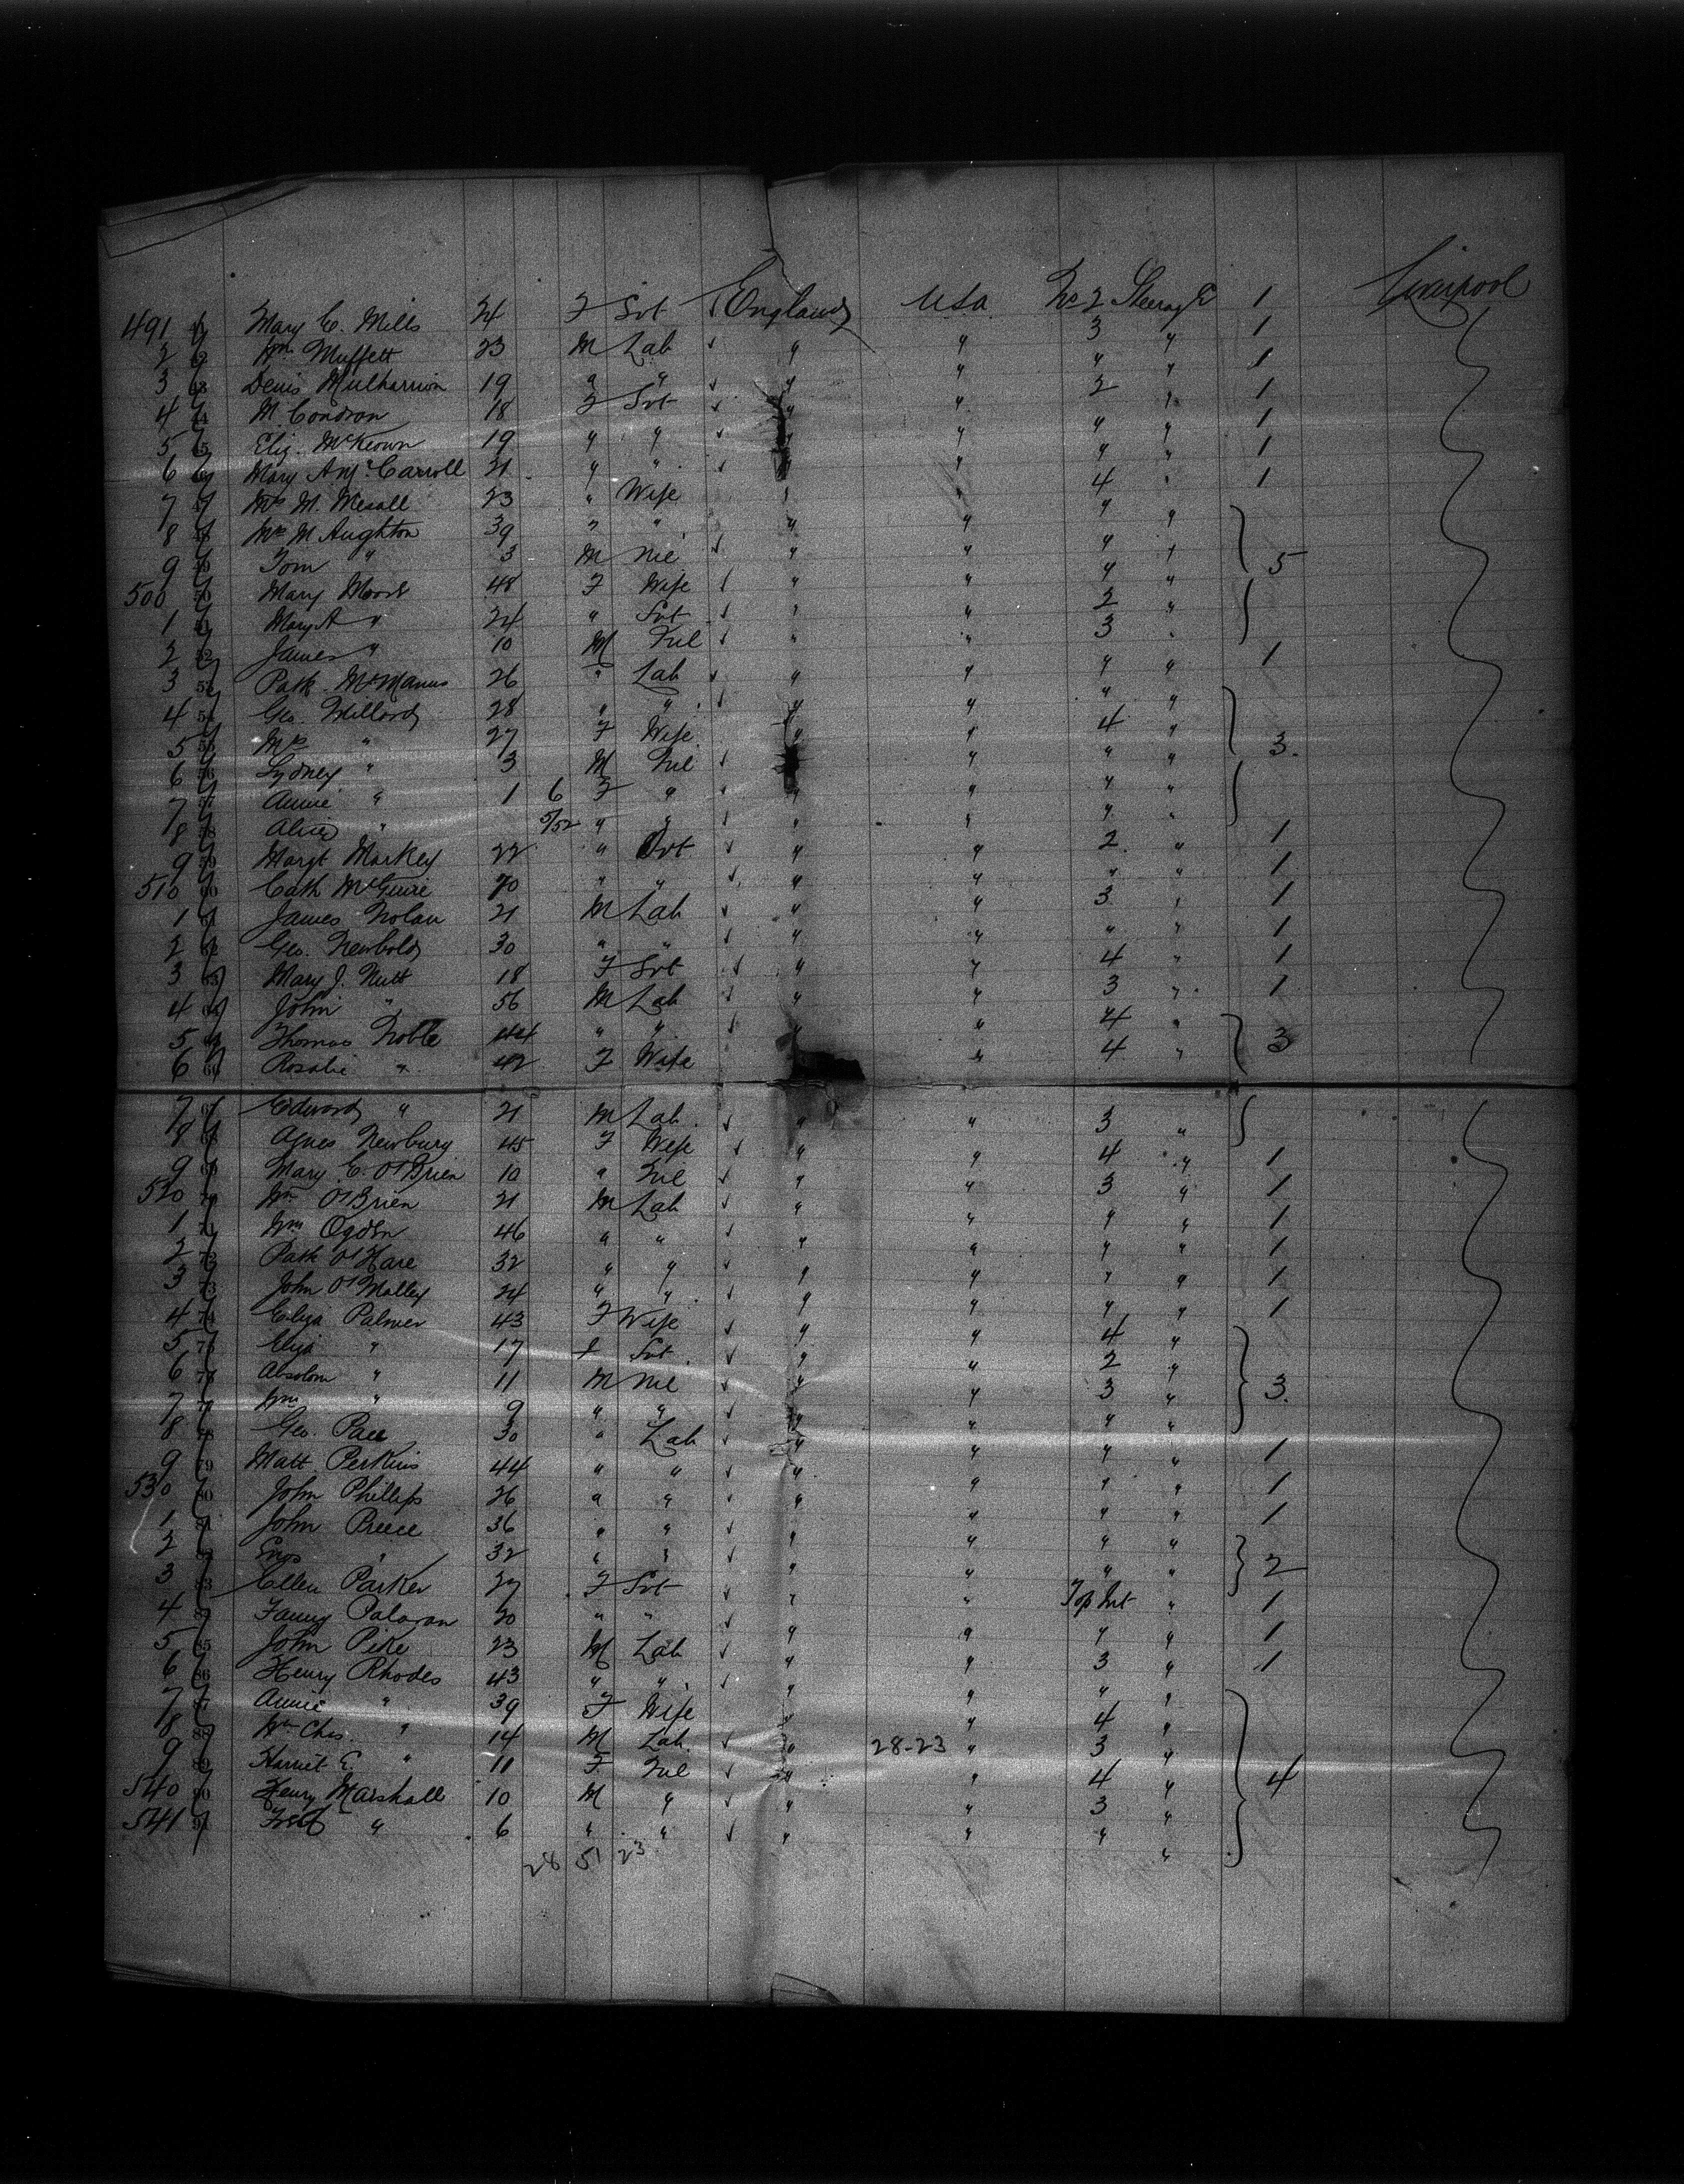 491 Mary C. Mills 24 F Svt England USA No 2 Steerage 1 Liverpool
2 Wm Muffett 23 M Lab " " 3 " 1
3 Denis Mulharrion 19 " " " " " " 1
4 M. Condron 18 F Svt " " 2 " 1
5 Eliz. McKeown 19 " " " " " " 1
6 Mary A McCarroll 21 " " " " " " 1
7 Mrs M. 23 " Wife " " 4 " 1
8 Mrs M Aughton 39 " " " " " "
9 Tom " 3 M Nil " " " " 5
500 Mary Moore 48 F Wife " " " "
1 Mary A " 24 " Svt " " 2 "
2 James " 10 M Nil " " 3 "
3 Patk. McManus 26 " Lab " " " " 1
4 Geo. Millard 28 " " " " " "
5 Mrs " 27 F Wife " " 4 " 3.
6 Sydney " 3 M Nil " " " "
7 Annie " 1 6 F " " " " "
8 Alice " 5/52 " " " " " "
9 Margt Markey 22 " Svt " " 2 " 1
510 Cath McGuire 20 " " " " " " 1
1 James Nolan 21 M Lab " " 3 " 1
2 Geo. Newbold 30 " " " " " " 1
3 Mary J. Nutt 18 F Svt " " 4 " 1
4 John " 56 M Lab " " 3 " 1
5 Thomas Noble 44 " " " " 4 " 3
6 Rosalie " 42 F Wife " " 4 "
7 Edward " 21 M Lab " " 3 "
8 Agnes Newbury 45 F Wife " " 4 " 1
9 Mary E. O'Brien 10 " Nil " " 3 " 1
520 Wm O'Brien 21 M Lab " " " " 1
1 Wm Ogden 46 " " " " " " 1
2 Patk O'Hare 32 " " " " " " 1
3 John O'Malley 24 " " " " " " 1
4 Eliza Palmer 43 F Wife " " 4 "
5 Eliza " 17 " Svt " " 2 "
6 Absolom " 11 M Nil " " 3 " 3.
7 Wm " 9 " " " " " "
8 Geo. Pace 30 " Lab " " " " 1
9 Matt Perkins 44 " " " " " " 1
530 John Phillips 26 " " " " " " 1
1 John Preece 36 " " " " " "
2 Enos " 32 " " " " " " 2
3 Ellen Parker 27 F Svt " " Top Int " 1
4 Fanny 20 " " " " " " 1
5 John Pike 23 M Lab " " 3 " 1
6 Henry Rhodes 43 " " " " " "
7 Annie " 39 F Wife " " 4 "
8 Wm Chas. " 14 M Lab " 28-23 " 3 "
9 Harriet E. " 11 F Nil " " 4 " 4
540 Henry Marshall 10 M " " " 3 "
541 Fred " 6 " " " " " "
28 51 23